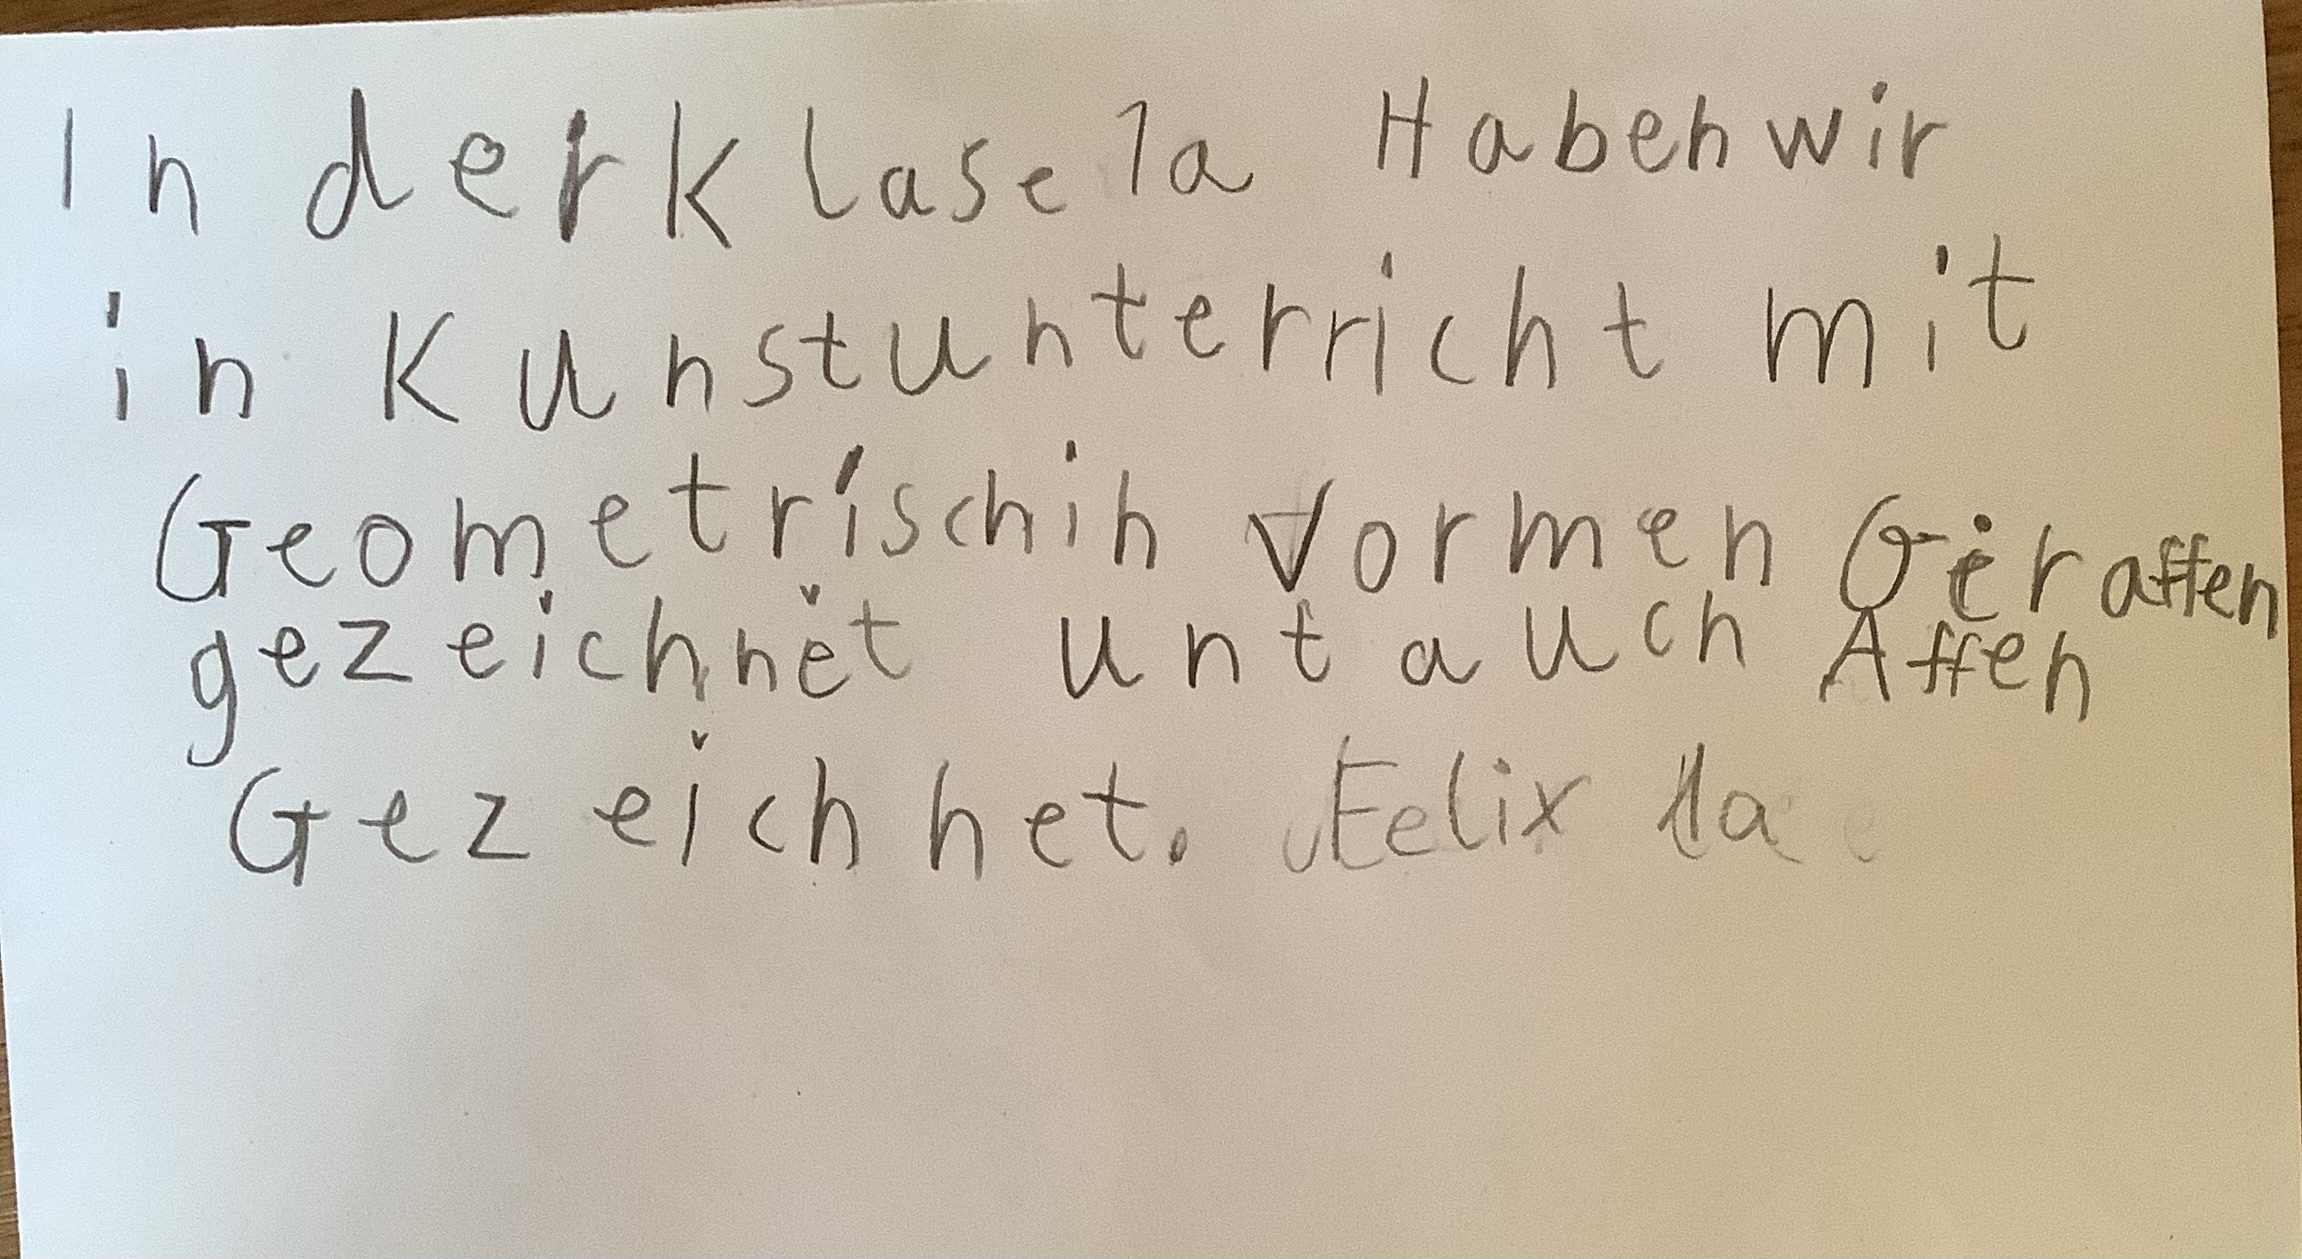 In der klase 1a Haben wir
in Kunstunterricht mit
Geometrischin Vormen Giraffen
gezeichnet unt auch Affen
Gezeichnet. Felix 1a